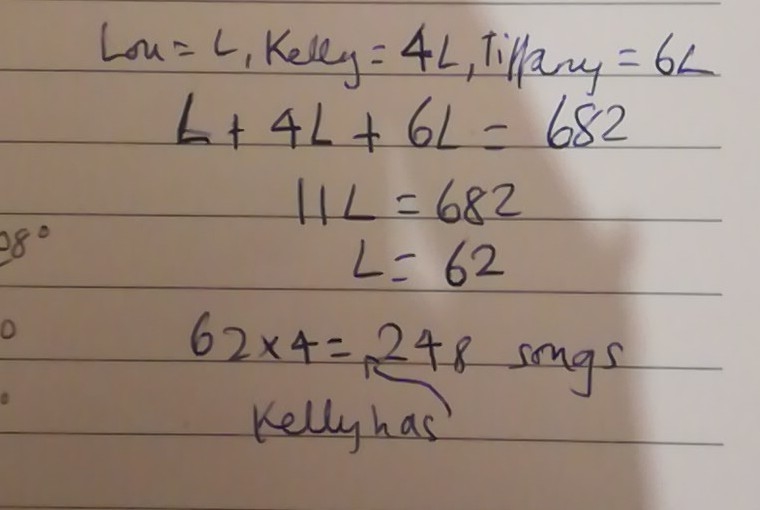 Lou = L, Kelly = 4L, Tiffany = 6L
L + 4L + 6L = 682
11L = 682
8°
L = 62
62 x 4 = 248 songs
Kelly has